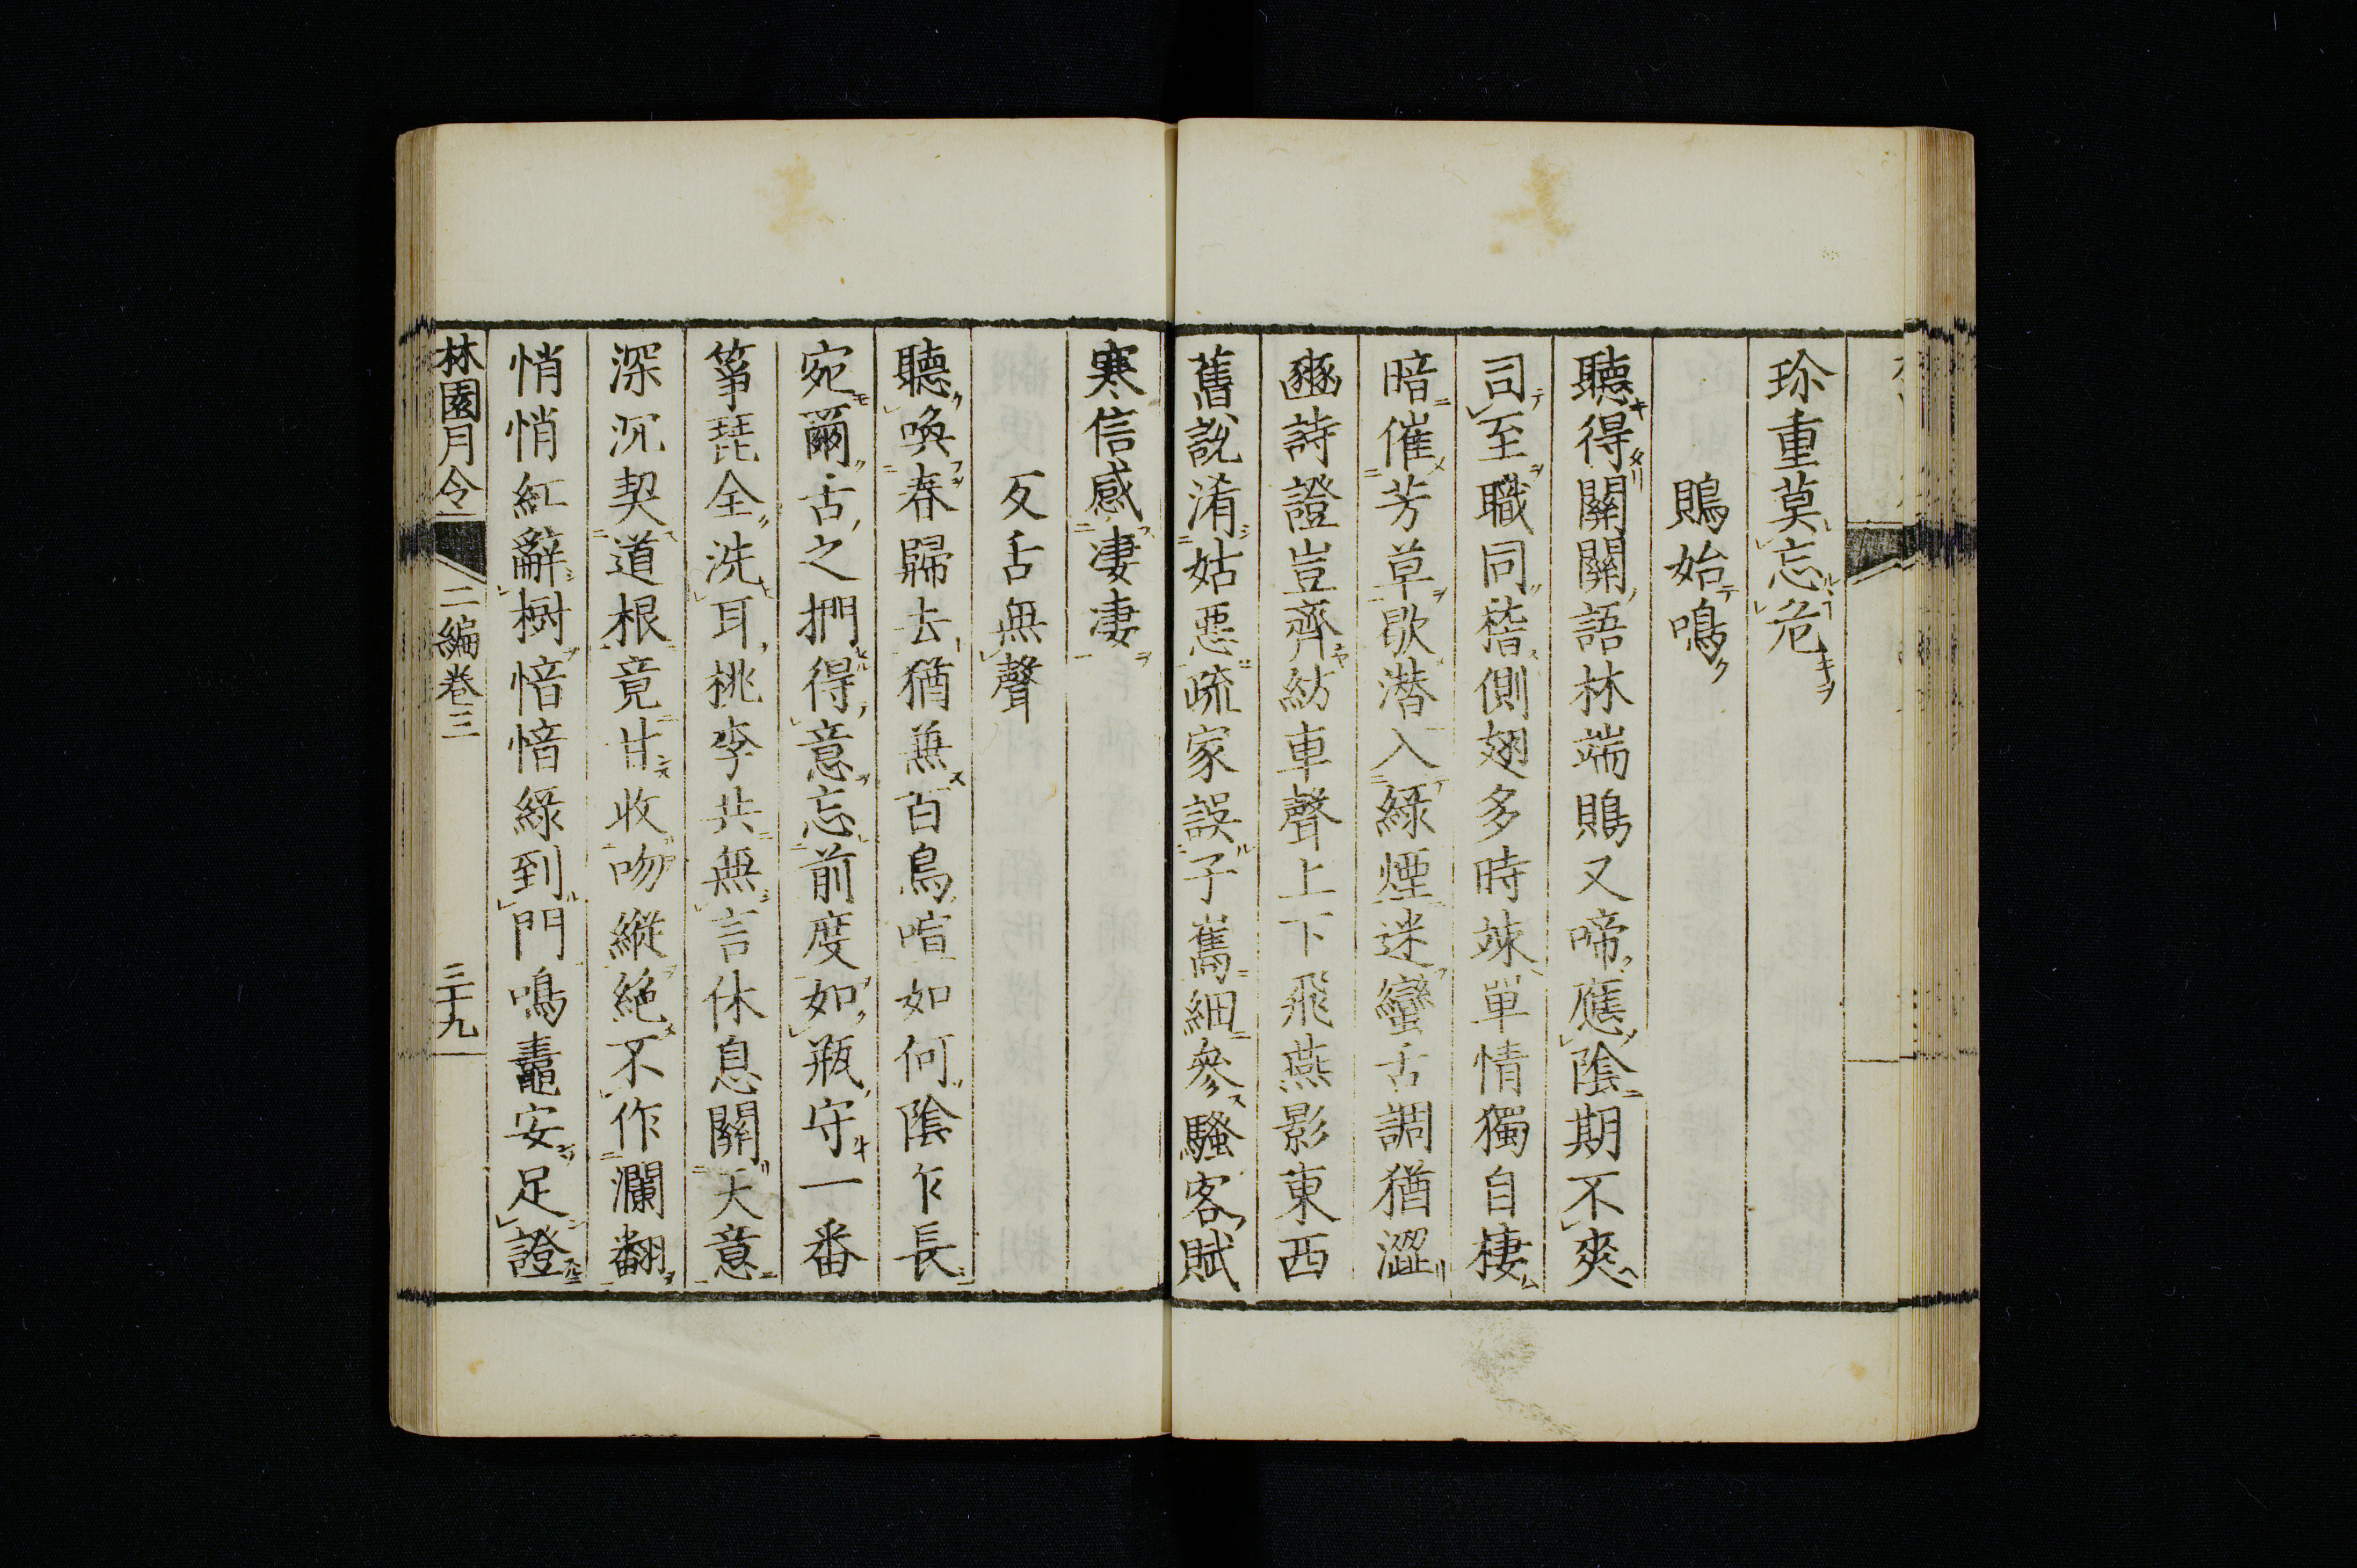 珎重莫忘危
鵙始鳴
聽得關關語林端鵙又啼應陰期不爽
司至職同稽側翅多時竦單情獨自棲
暗催芳草歇潛入綠煙迷蠻舌調猶澀
豳詩證豈齊紡車聲上下飛燕影東西
舊說淆姑惡疏家誤子嶲細參騷客賦
寒信感凄凄
反舌無聲
聽喚春歸去猶無百鳥喧如何陰乍長
宛爾舌之捫得意忘前度如瓶守一番
箏琵全洗耳桃李共無言休息關大意
深沉契道根竟甘收吻縱絕不作瀾翻
悄悄紅辭樹愔愔綠到門鳴鼃安足證
林園月令 二編卷三 三十九